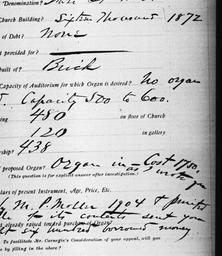 "Denomination?
Church Building? Sixteen Thousand 1872
of Debt? None
t provided for?
built of? Brick
Capacity of Auditorium for which Organ is desired? No organ
Capacity 500 to 600.
480 on floor of Church
120 in gallery
ership? 438
proposed Organ? Organ in— Cost 1750.
(This question is for explicit answer after investigation.)
lars of present Instrument, Age, Price, Etc.
M. P. Moller 1904 &
for its contents sent you
already raised toward purchase of Organ?
six hundred borrowed money
To facilitate Mr. Carnegie's Consideration of your appeal, will you
be by filling in the above?